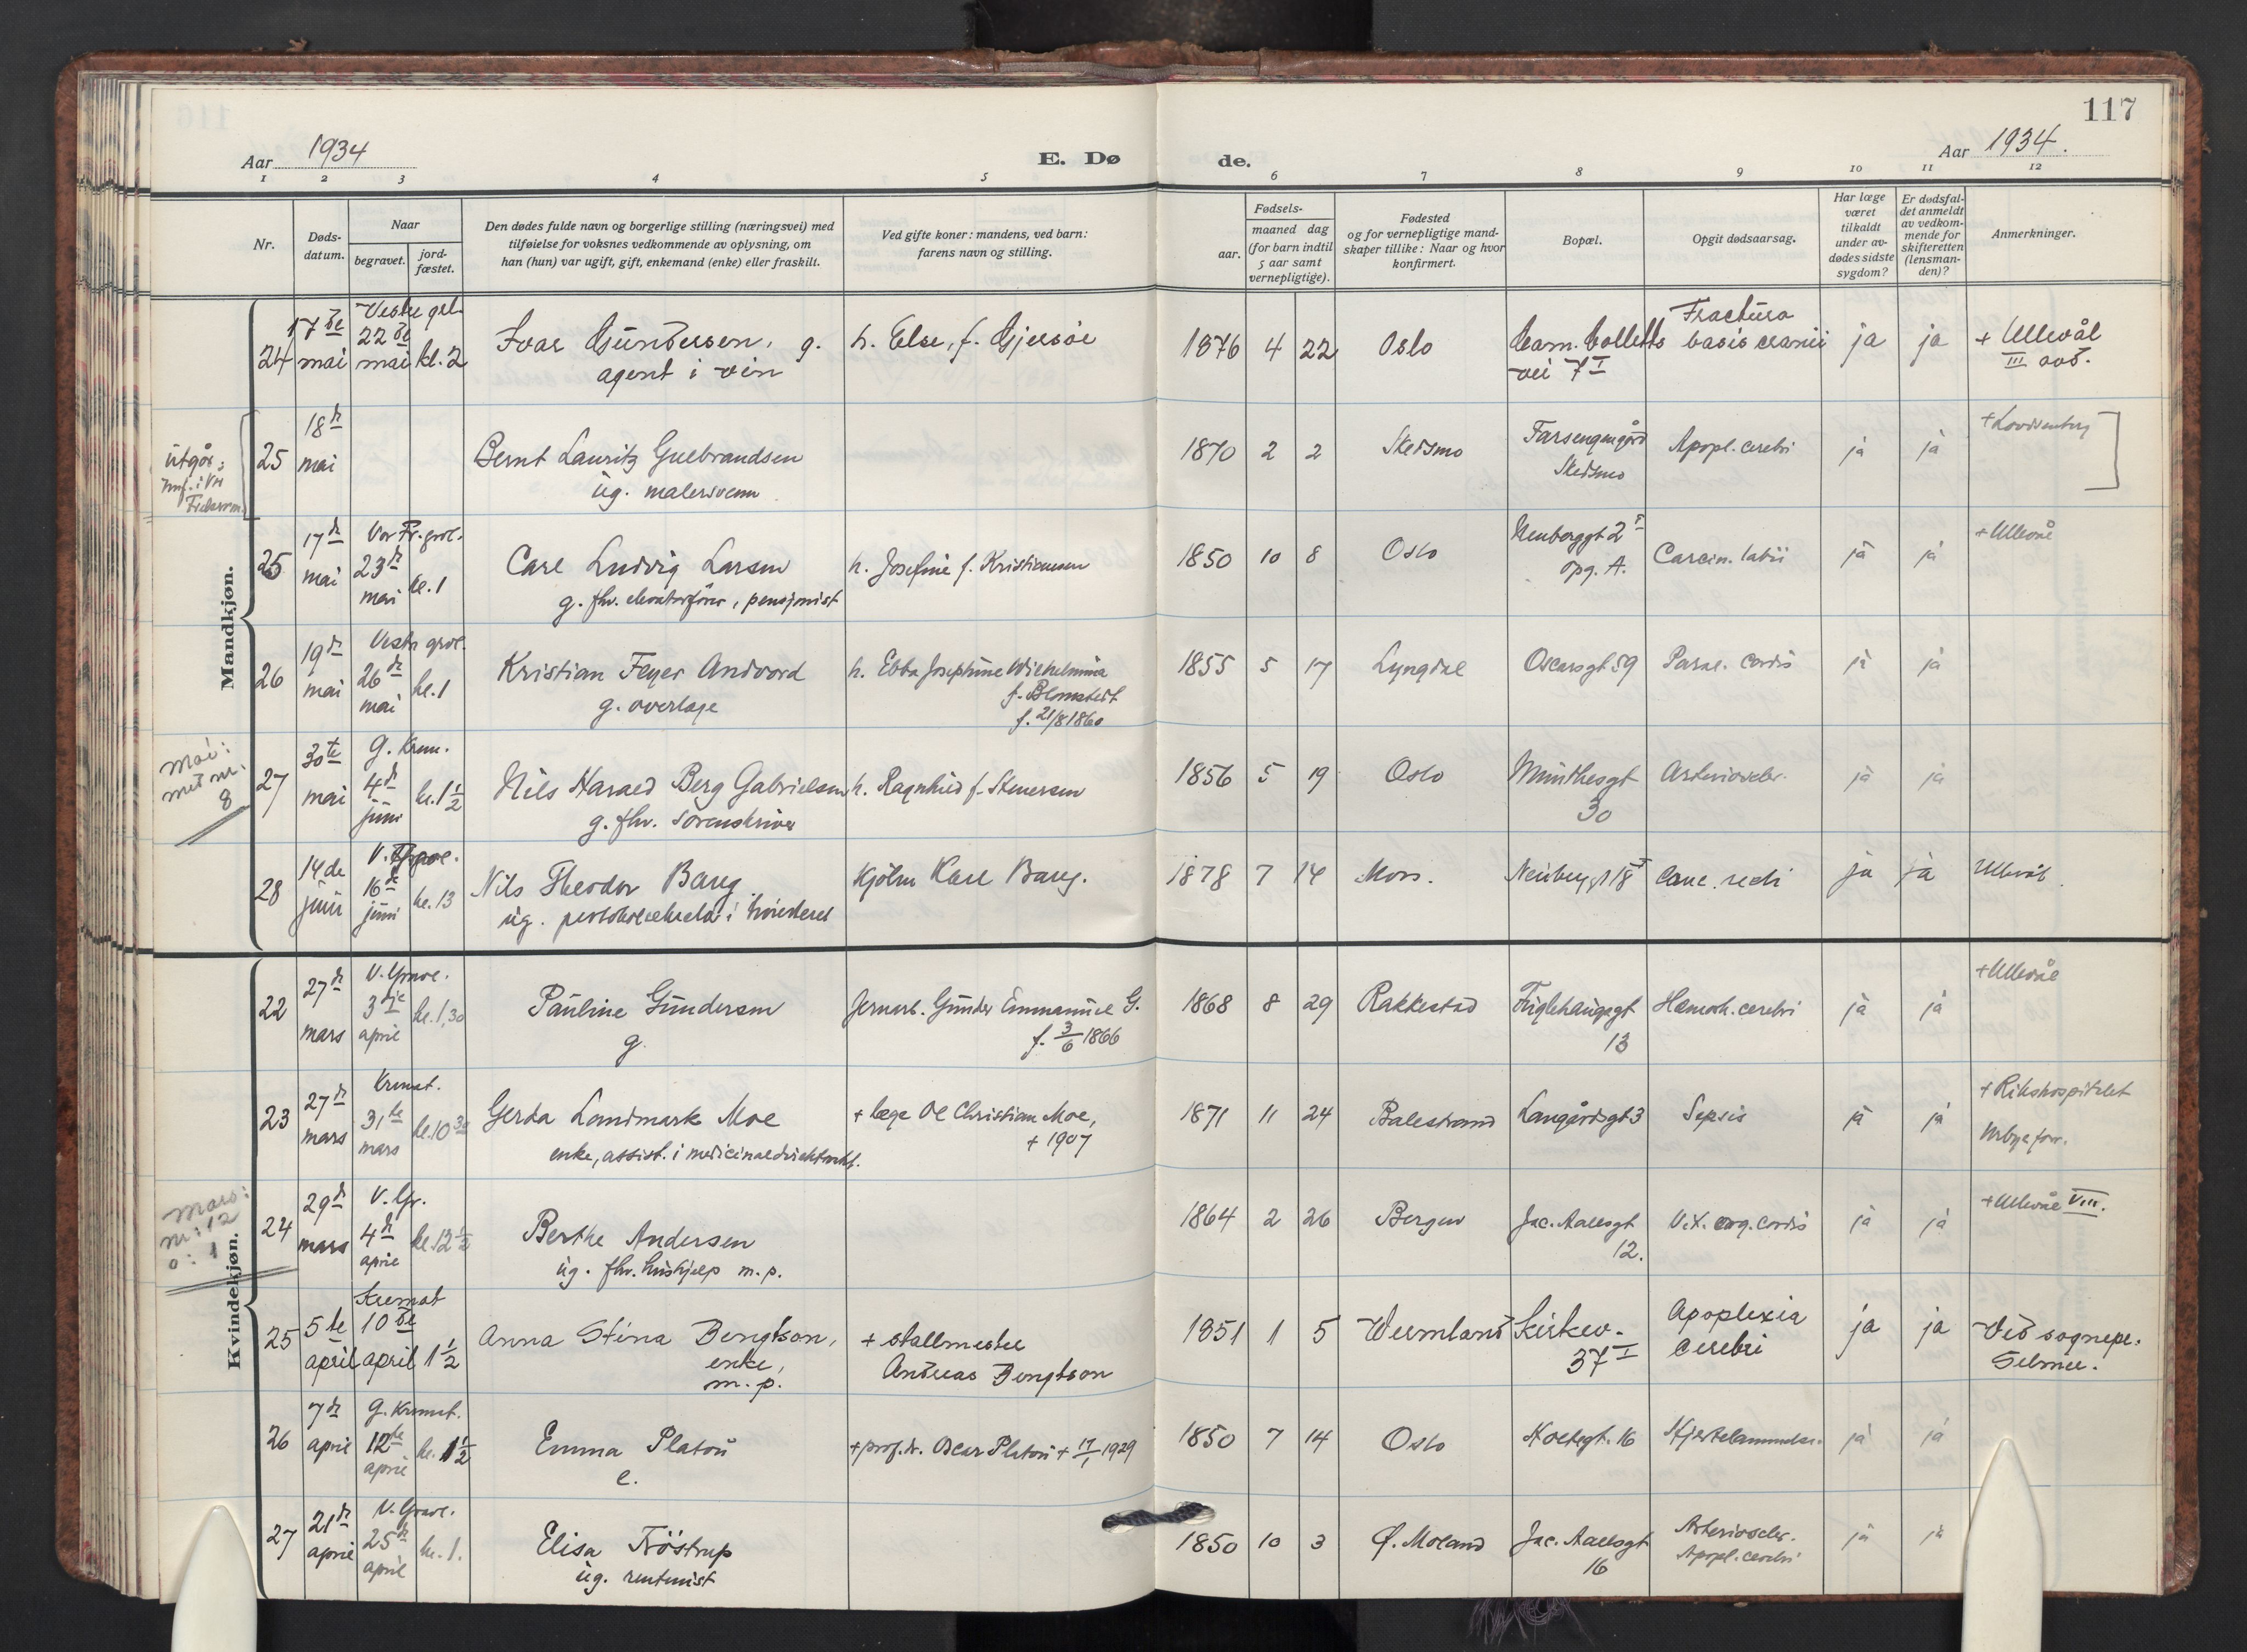 117
Aar 1934
E. Dø
de.
Aar 1934.
1 2 3 4 5 6 7 8 9 10 11 12
Nr.
Døds-
datum.
Naar
begravet.
jord-
fæstet.
Den dødes fulde navn og borgerlige stilling (næringsvei) med
tilføielse for voksnes vedkommende av oplysning, om
han (hun) var ugift, gift, enkemand (enke) eller fraskilt.
Ved gifte koner: mandens, ved barn:
farens navn og stilling.
Fødsels-
aar.
maaned dag
(for barn indtil
5 aar samt
vernepligtige).
Fødested
og for vernepligtige mand-
skaper tillike: Naar og hvor
konfirmert.
Bopæl.
Opgit dødsaarsag.
Har læge
været
tilkaldt
under av-
dødes sidste
sygdom?
Er dødsfal-
det anmeldt
av vedkom-
mende for
skifteretten
(lensman-
den)?
Anmerkninger.
Mandkjøn.
24 17de mai
22de mai kl. 2
Ivar Gundersen, g.
agent i vin
h. Else, f. Gjersøe
1876 4 22 Oslo
Cam. Colletts
vei 7 I
Fractura
basis cranii
ja ja
+ Ullevål
III avd.
utgår;
25 18de mai
Bernt Lauritz Gulbrandsen
ug. malersvenn
1870 2 2 Skedsmo
Skedsmo
Apopl. cerebri
ja ja
+ Lovisenberg
25 17de mai
Vor Fr. grvl.
23de mai kl. 1
Carl Ludvig Larsen
g. fhv. elevatorfører, pensjonist
h. Josefine f. Kristiansen
1850 10 8 Oslo
Neuberggt 2
opg. A.
Carcin. labii
ja ja
+ Ullevål
26 19de mai
Vestre grvl.
26de mai kl. 1
Kristian Feyer Andvord
g. overlæge
h. Ebba Josephine Wilhelmina
f. Blomstedt
f. 21/8 1860
1855 5 17 Lyngdal
Oscarsgt 59
Paral. cordis
ja ja
Mai:
med nr.
8
27 30te mai
G. Krem.
4de juni kl. 1½
Nils Harald Berg Gabrielsen
g. fhv. sorenskriver
h. Ragnhild f. Stenersen
1856 5 19 Oslo
Munthesgt
30
Arterioscler.
ja ja
28 14de juni
16de juni kl. 13
Nils Theodor Bang
ug. protokollsekretær i høiesterett
Kjøbm Karl Bang.
1878 7 14 Mors.
Neuberggt 18
Canc. recti
ja ja
Ullevål
Kvindekjøn.
22 27de mars
V. Gravl.
3dje april kl. 1,30
Pauline Gundersen
g.
Jernarb. Gunder Emmanuel G.
f. 3/6 1866
1868 8 29 Rakkestad
Fuglehauggt
13
Hæmorh. cerebri
ja ja
+ Ullevål
23 27de mars
Kremat.
31te mars kl. 10 30
Gerda Landmark Moe
enke, assist. i medicinaldirektoratet.
+ læge Ole Christian Moe,
+ 1907
1871 11 24 Balestrand
Langårdsgt 3
Sepsis
ja ja
+ Rikshospitalet
Mars:
nr: 12
o: 1
24 29de mars
V. Gr.
4de april kl. 12½
Berthe Andersen
ug. fhv. hushjelp m.p.
1864 2 26 Bergen
Jac. Aallsgt
12.
Vit. org. cordis
ja ja
+ Ullevål VIII.
25 5te april
Kremat
10de april 1½
Anna Stina Bengtson,
enke,
m.p.
+ stallmester
Andreas Bengtson
1851 1 5 Wermland
Kirkev.
37 I
Apoplexia
cerebri
ja ja
Ved sognepr.
Selmer.
26 7de april
G. Kremat.
12te april kl. 1½
Emma Platou
e.
+ prof. dr. Oscar Platou + 17/1 1929
1850 7 14 Oslo
Holtegt. 16
Hjertelammelse.
ja ja
27 21de april
V. Gravl.
25de april kl. 1.
Elisa Trøstrup
ug. rentenist
1850 10 3 Ø. Moland
Jac. Aallsgt
16
Arterioscler.
Apopl. cerebri
ja ja